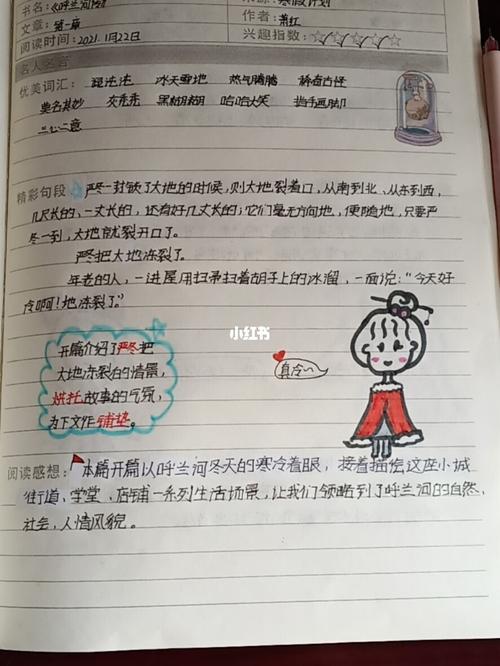 书名:《呼兰河传》 来源:寒假计划
文章:第一章 作者:萧红
阅读时间:2021.1月22日 兴趣指数:
名人名言
优美词汇: 冰天雪地 热气腾腾 稀奇古怪
莫名其妙 黑糊糊 哈哈大笑 指手画脚
三心二意
精彩句段 严冬一封锁了大地的时候,则大地裂着口,从南到北、从东到西,
几尺长的、一丈长的,还有好几丈长的;它们是无方向地,便随地,只要严
冬一到,大地就裂开口了。
严把大地冻裂了。
年老的人,一进屋用扫帚扫着胡子上的冰溜,一面说:“今天好
冷啊!地冻裂了。”
开篇介绍了严冬把
大地冻裂的情景,
烘托故事的气氛,
为下文作铺垫。
小红书
真冷~
阅读感想: 本篇开篇以呼兰河冬天的寒冷着眼,接着描绘这座小城
街道、学堂、店铺一系列生活场景,让我们领略到了呼兰河的自然、
社会,人情风貌。